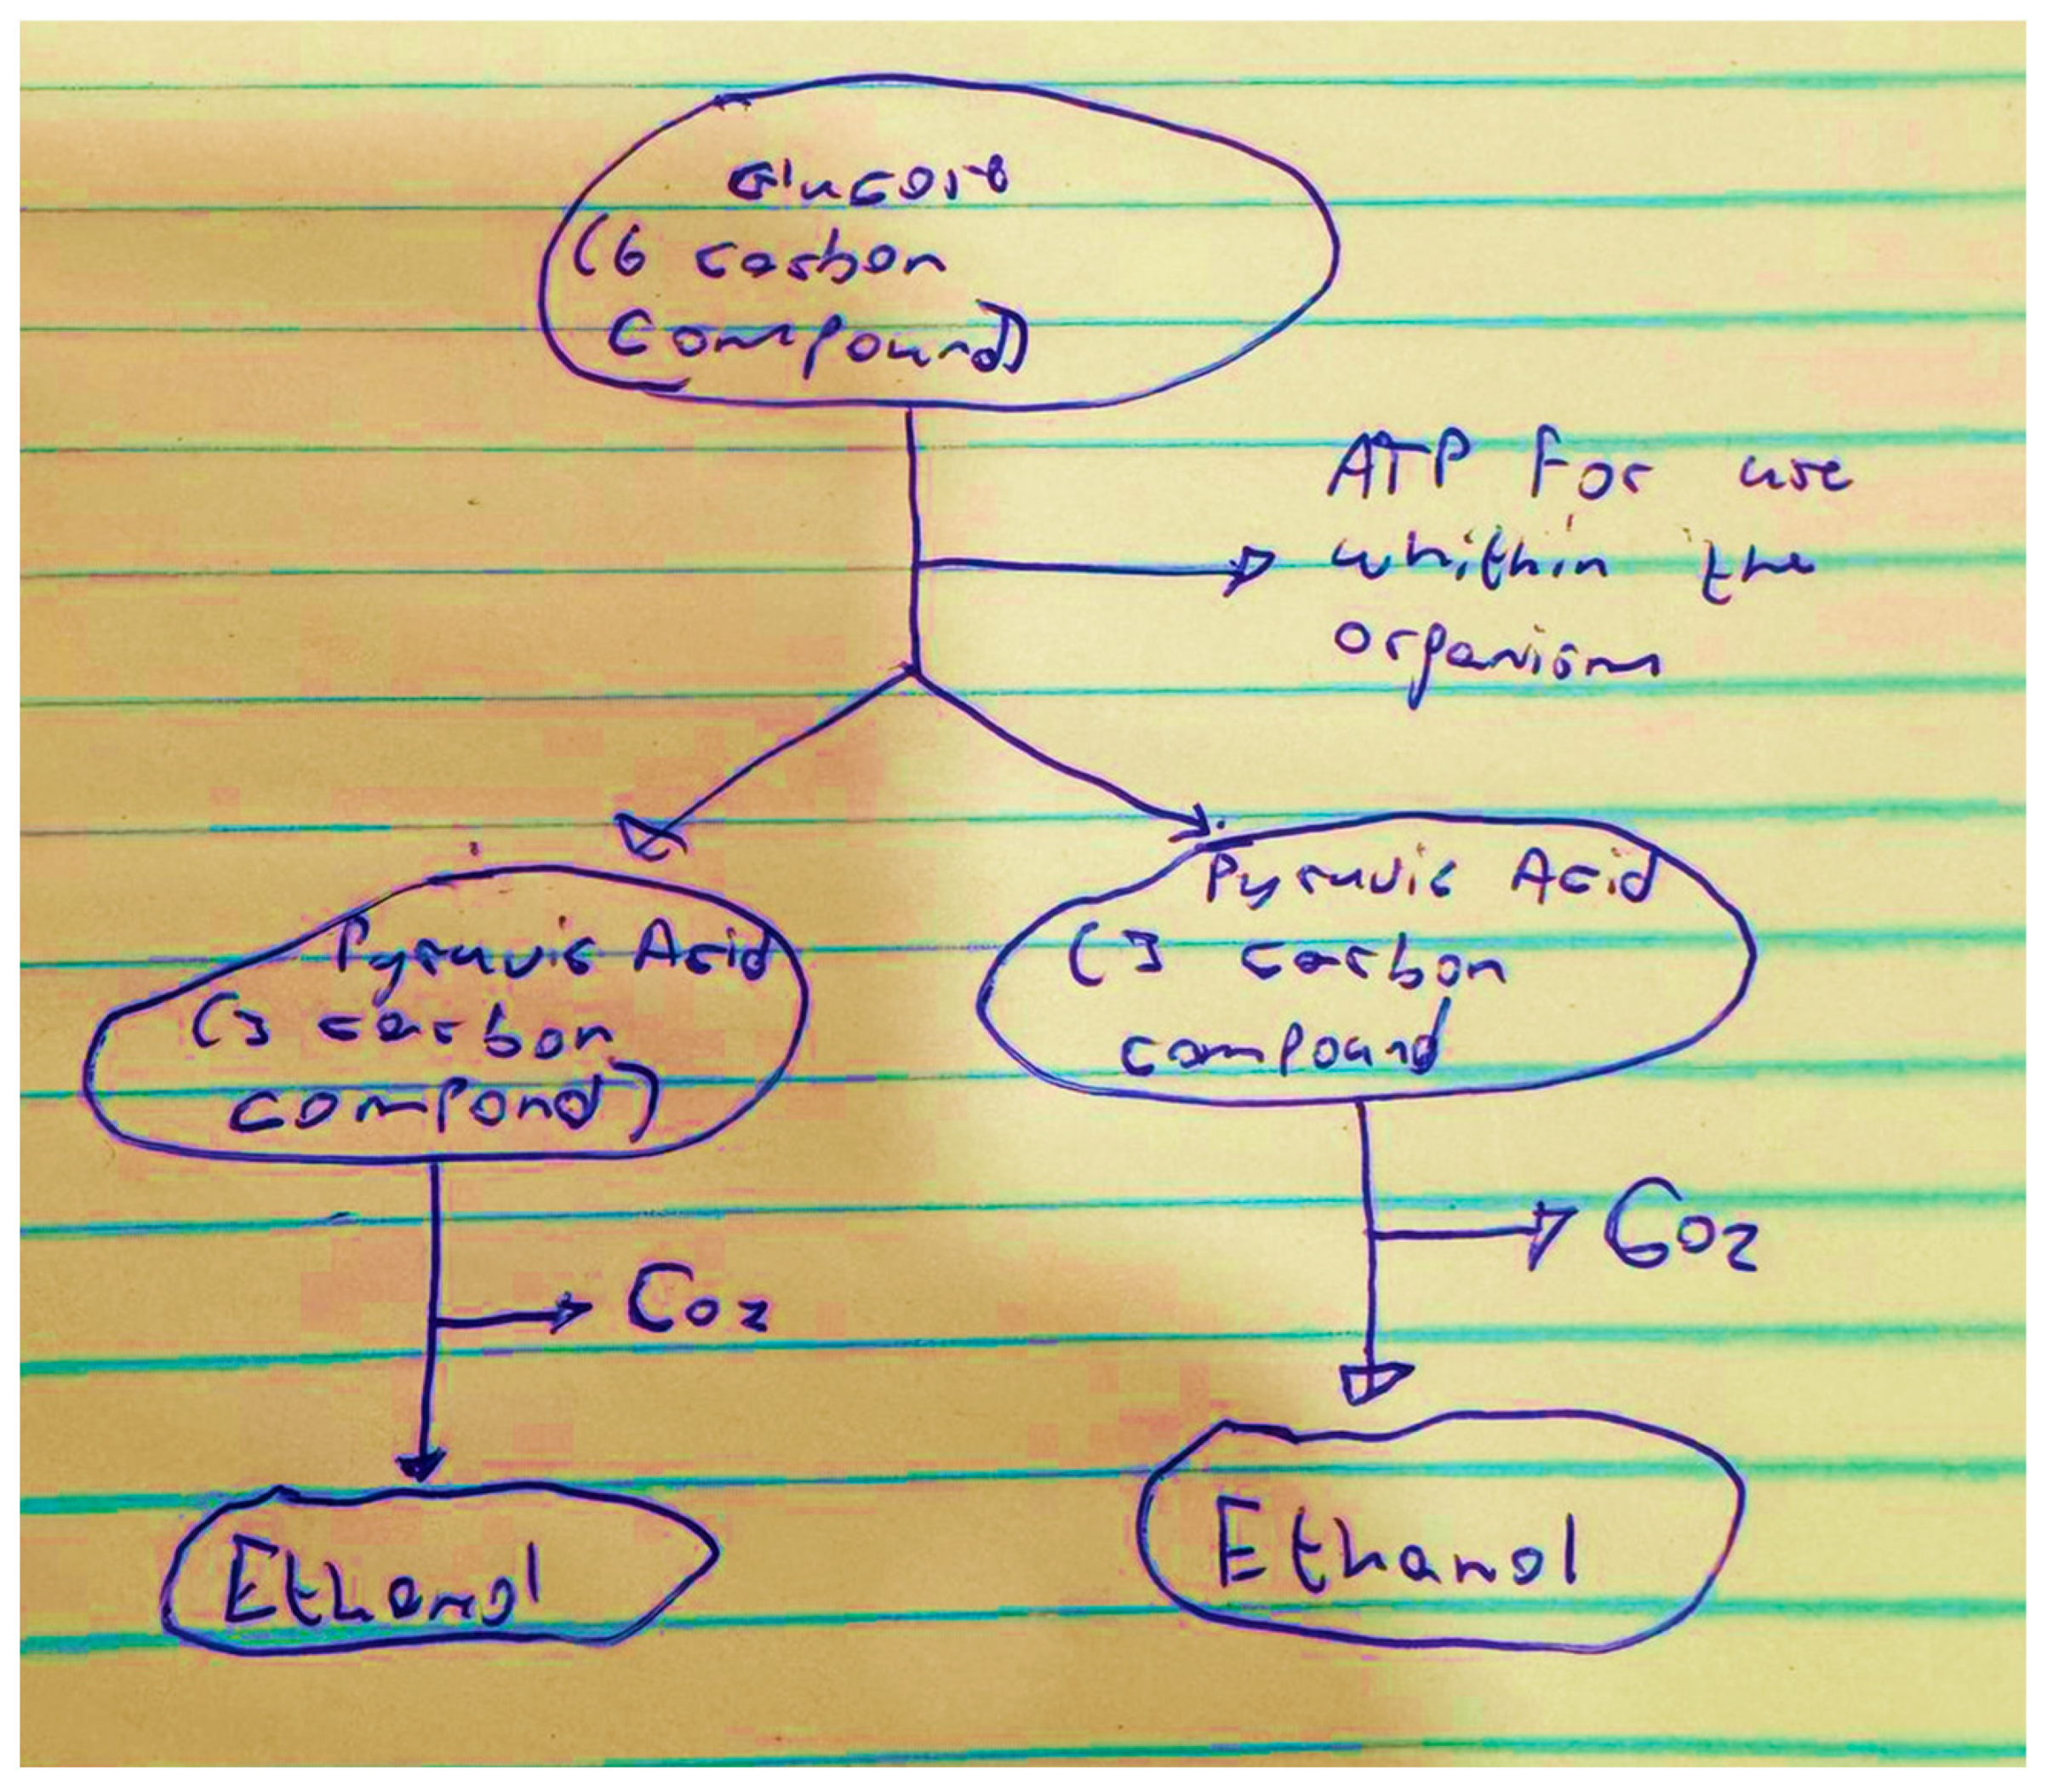 Glucose
(6 carbon
Compound)
ATP For use
whithin the
organism
Pyruvic Acid
(3 carbon
compound
Pyruvic Acid
(3 carbon
compond)
Co2
Co2
Ethanol
Ethanol